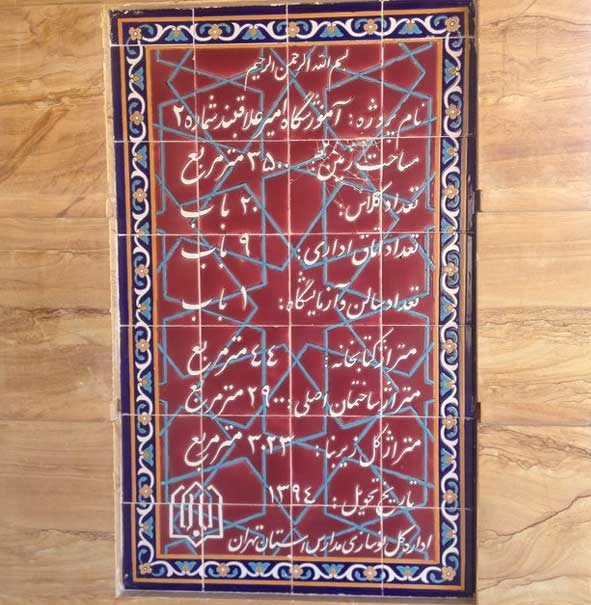 بسم الله الرحمن الرحیم
نام پروژه: آموزشگاه امیر علاقبند شماره ۲
مساحت زمین: ۳۵۰۰ مترمربع
تعداد کلاس: ۲۰ باب
تعداد اتاق اداری: ۹ باب
تعداد سالن و آزمایشگاه: ۱ باب
متراژ کتابخانه: ۴۴ مترمربع
متراژ ساختمان اصلی: ۲۹۰۰ مترمربع
متراژ کل زیربنا: ۳۰۲۳ مترمربع
تاریخ تحویل: ۱۳۹۴
اداره کل نوسازی مدارس استان تهران